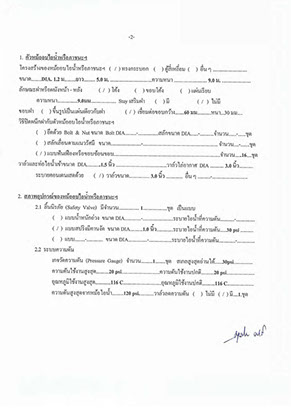 -2-
1. ตัวหม้ออบไอน้ำหรือภาชนะฯ
โครงสร้างของหม้ออบไอน้ำหรือภาชนะฯ ( / ) ทรงกระบอก ( ) ตู้สี่เหลี่ยม ( ) อื่น ๆ
ขนาด.......DIA. 1.2 ม.......ยาว........ 5.0 ม. ความหนา 9.0 มม.
ลักษณะฝาหรือผนังหน้า - หลัง ( / ) โค้ง ( ) ขอบโค้ง ( ) แผ่นเรียบ
ความหนา.........9.0มม. Stay เสริมฝา ( ) มี ( / ) ไม่มี
ขอบฝา ( ) ขึ้นรูปเป็นแผ่นเดียวกับฝา ( / ) เชื่อมต่อขอบกว้าง.......60 มม....... หนา...30 มม...
วิธีปิดผนึกฝากับตัวหม้ออบไอน้ำหรือภาชนะฯ
( ) ยึดด้วย Bolt & Nut ขนาด Bolt DIA. สลักขนาด DIA. จำนวน ชุด
( ) สลักเลื่อนตามแนวรัศมี ขนาด จำนวน ชุด
( / ) แบบฟันเฟืองหรือขอบซ้อนขอบ จำนวน....16....ชุด
วาล์วและท่อไอน้ำเข้าขนาด..........DIA.1.5 นิ้ว.......... วาล์วไล่อากาศ DIA. 3.0 นิ้ว
ระบายคอนเดนเสทด้วย ( / ) วาล์วขนาด 3.0 นิ้ว อื่น ๆ
2. สภาพอุปกรณ์ของหม้ออบไอน้ำหรือภาชนะฯ
2.1 ลิ้นนิรภัย (Safety Valve) มีจำนวน 1 ชุด เป็นแบบ
( ) แบบน้ำหนักถ่วง ขนาด DIA. ระบายไอน้ำที่ความดัน
( / ) แบบสปริงมีคานงัด ขนาด DIA. 1.0 นิ้ว ระบายไอน้ำที่ความดัน 30 psi
( ) แบบ ขนาด DIA. ระบายไอน้ำที่ความดัน
2.2 ระบบความดัน
เกจวัดความดัน (Pressure Gauge) จำนวน 1 ชุด สเกลสูงสุดอ่านได้ 30psi
ความดันใช้งานสูงสุด 20 psi ความดันใช้งานปกติ 20 psi
อุณหภูมิใช้งานสูงสุด 116 C อุณหภูมิใช้งานปกติ 116 C
ความดันสูงสุดจากหม้อไอน้ำ 120 psi วาล์วลดความดัน ( ) ไม่มี ( / ) มี...1.ชุด